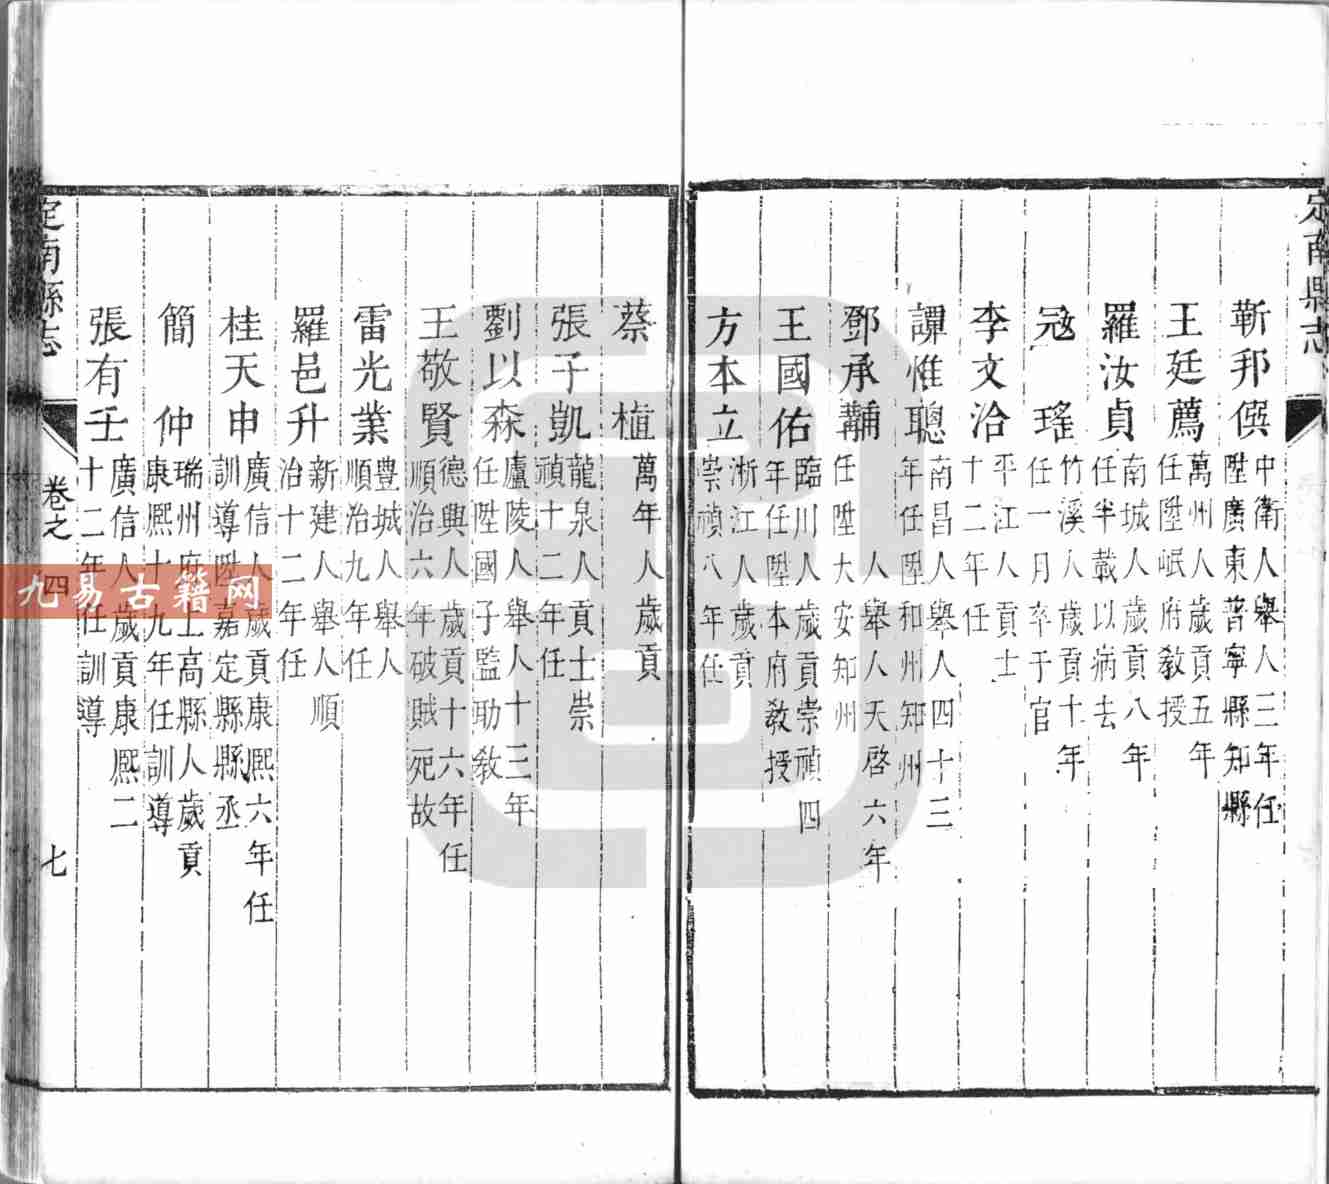 定南縣志
靳邦僎 中衛人舉人三年任
陞廣東普寧縣知縣
王廷薦 萬州人歲貢五年
任陞岷府敎授
羅汝貞 南城人歲貢八年
任半載以病去
冦 瑤 竹溪人歲貢十年
任一月卒于官
李文洽 平江人貢士
十二年任
譚惟聰 南昌人舉人四十三
年任陞和州知州
鄧承黼 人舉人天啓六年
任陞大安知州
王國佑 臨川人歲貢崇禎四
年任陞本府敎授
方本立 浙江人歲貢
崇禎八年任
蔡 植 萬年人歲貢
張子凱 龍泉人貢士崇
禎十二年任
劉以森 廬陵人舉人十三年
任陞國子監助敎
王敬賢 德興人歲貢十六年任
順治六年破賊死故
雷光業 豐城人舉人
順治九年任
羅邑升 新建人舉人順
治十二年任
桂天申 廣信人歲貢康熙六年任
訓導陞嘉定縣縣丞
簡 仲 瑞州府上高縣人歲貢
康熙十九年任訓導
張有壬 廣信人歲貢康熙二
十二年任訓導
定南縣志 卷之四 七
九易古籍网